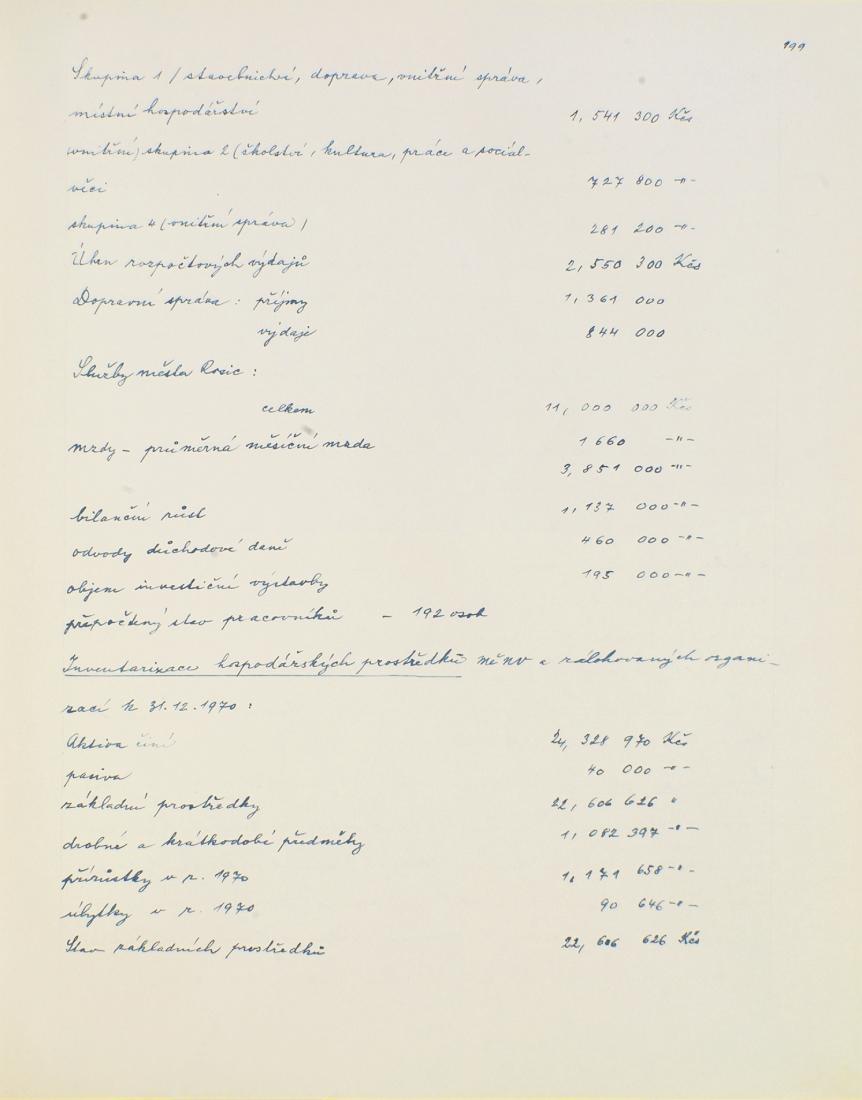 199
Skupina 1 / stavebnictví, doprava, vnitřní správa,
místní hospodářství 1, 541 300 Kčs
(vnitřní) skupina 2 (školství, kultura, práce a sociál-
věci 727 800 -"-
skupina 4 (vnitřní správa) 281 200 -"-
Úhrn rozpočtových výdajů 2, 550 300 Kčs
Dopravní správa: příjmy 1, 361 000
výdaje 844 000
Služby města Rosic:
celkem 11, 000 000 Kčs
mzdy - průměrná měsíční mzda 1 660 -"-
3, 851 000 -"-
bilanční růst 1, 137 000 -"-
odvody důchodové daně 460 000 -"-
objem investiční výstavby 195 000 -"-
přepočtený stav pracovníků - 192 osob
Inventarizace hospodářských prostředků MěNV a zálohovaných organi-
zací k 31.12.1970:
Aktiva činí 24, 328 970 Kčs
pasiva 40 000 -"-
základní prostředky 22, 606 626 "
drobné a krátkodobé předměty 1, 082 397 -"-
přírůstky v r. 1970 1, 171 658 -"-
úbytky v r. 1970 90 646 -"-
Stav základních prostředků 22, 606 626 Kčs